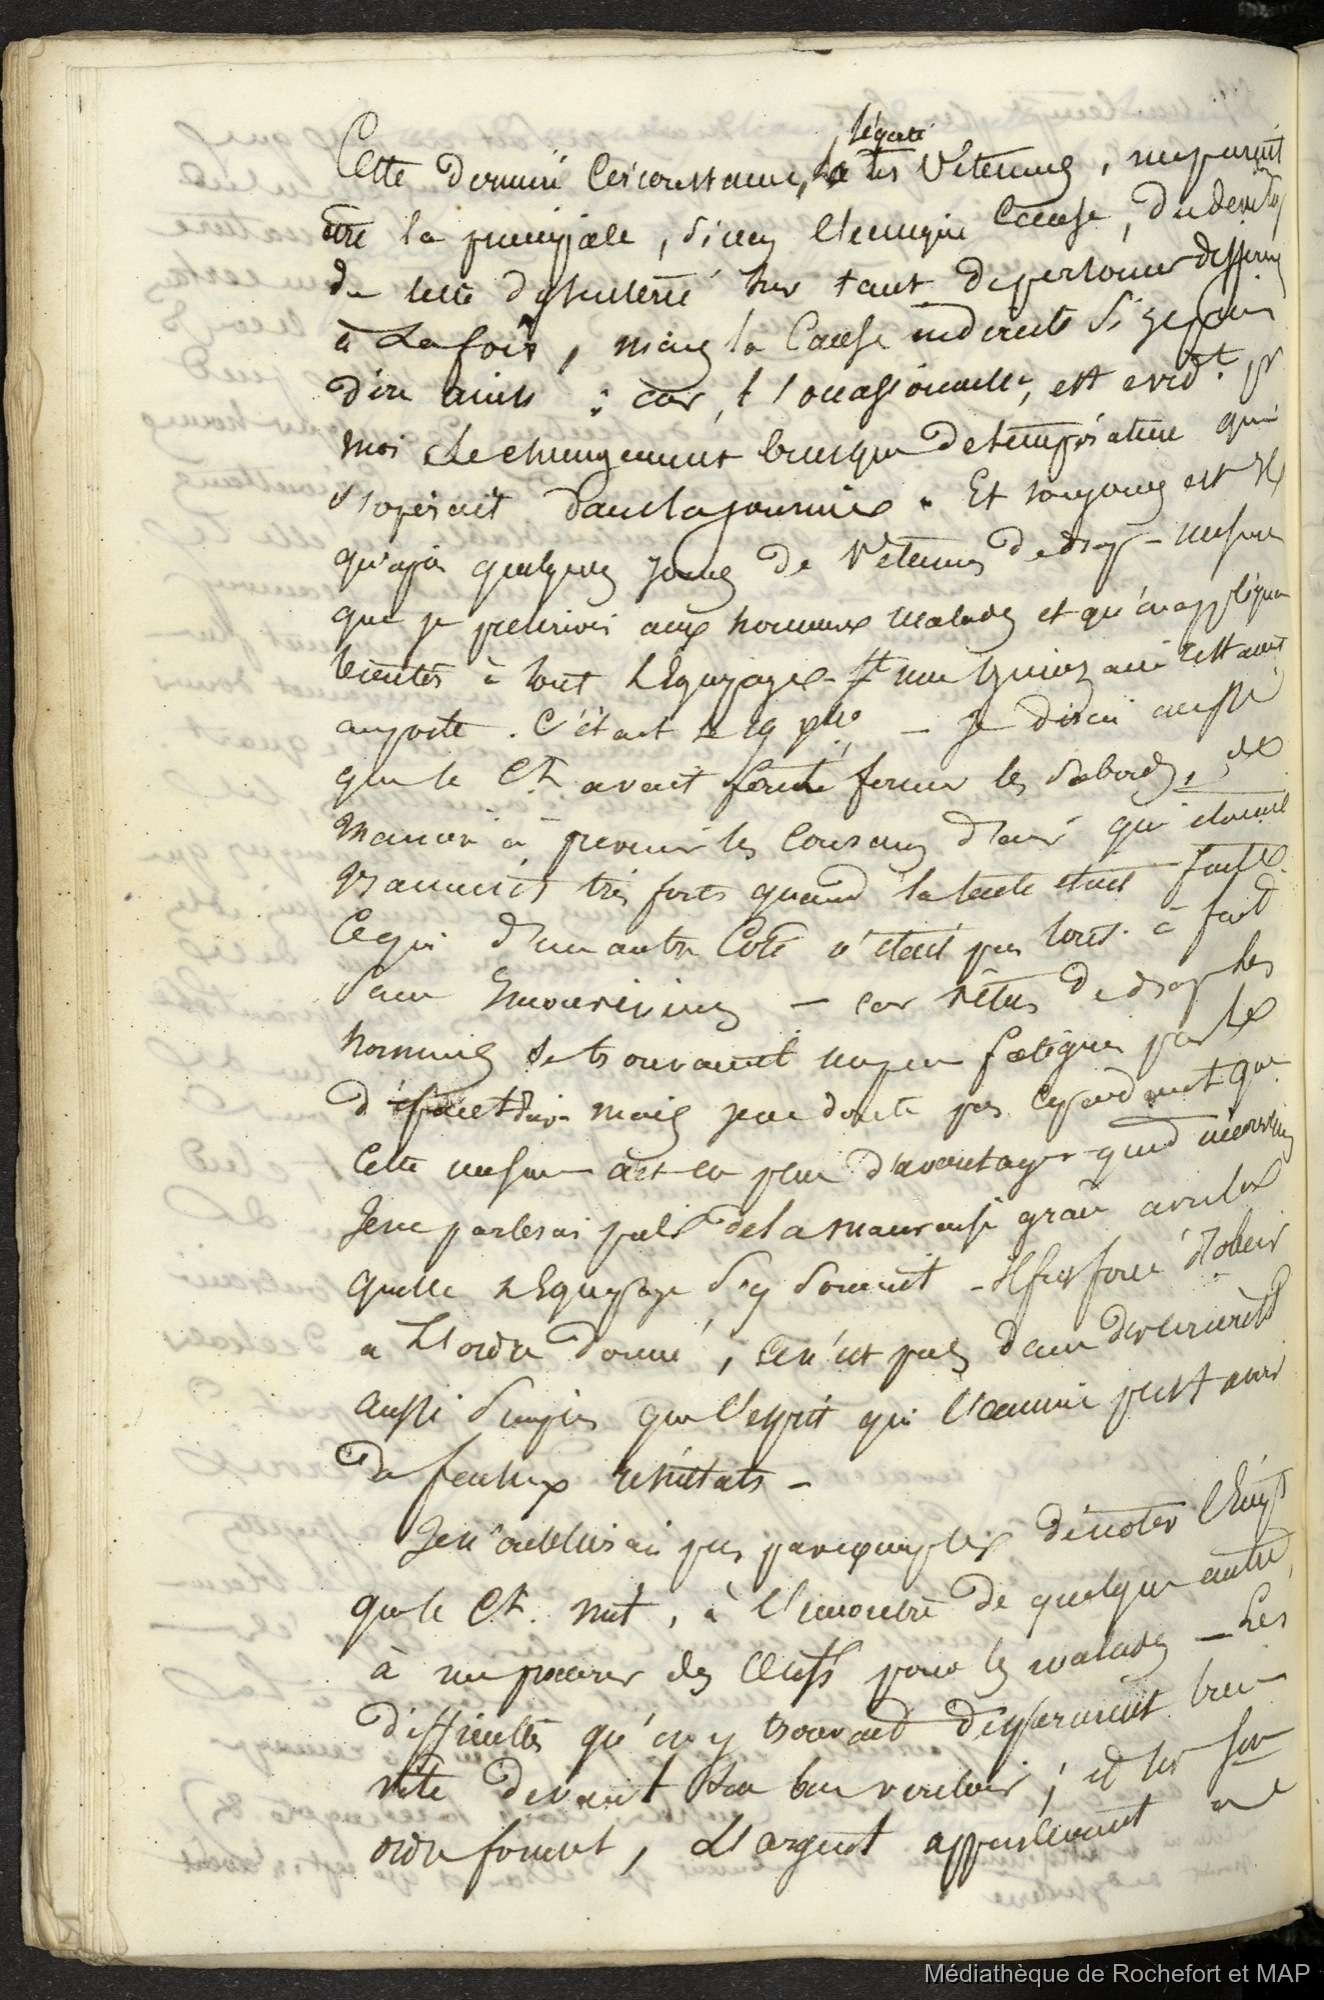 légèreté
Cette dernière Circonstance, la des Vêtemens, me parait
être la principale, sinon l'unique Cause, du develop
de cette dysenterie sur tant de personnes differens
à La fois, mais la Cause indirecte si je puis
dire ainsi : car, l'occasionnelle, est evidt. pr
moi le changement brusque de température qui
s'opérait dans la journée. Et toujours est il
qu'après quelques jours de Vêtemens de drap - mesure
que je prescrivis aux hommes malades et qu'on appliqua
bientôt à tout L'Equipage - il me
au poste. C'était le 29 - Je dirai aussi
que le Ct. avait fermer les Sabords, de
Maniere à prevenir les Courans d'air qui étaient
vraiment très forts quand la tente était faite
Ce qui d'un autre Coté n'était pas tout à fait
sans inconveniens - car vêtus de drap les
hommes se trouvaient un peu fatigués par le
défaut d'air mais je ne doute pas cependant que
cette mesure ait eu plus d'avantages que d'inconvéniens
Je ne parlerai pas de la mauvaise grâce avec la
quelle L'Equipage s'y soumit - il fut forcé d'obeir
à L'ordre donné, ce n'est pas dans des circonsts
aussi simples que l'esprit qui l'anime peut avoir
de facheux résultats -
Je n'oublierai pas par exemple de noter l'empt
que le Ct. mit, à l'encontre de quelques autres,
à me procurer des OEufs pour les malades - Les
difficultés qu'on y trouvait disparaissent bien
vite devant son bon vouloir ; et sur son
ordre formel, L'argent appartenant au